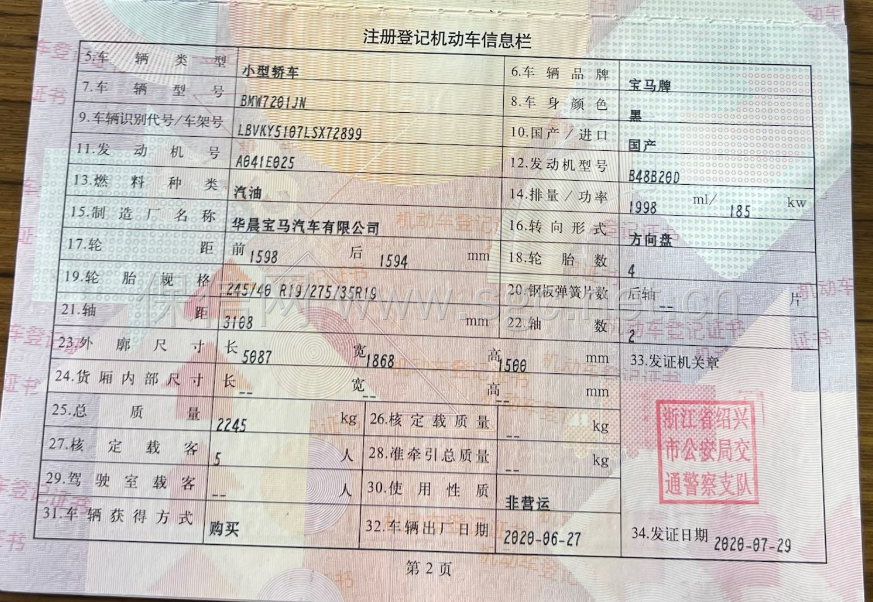 注册登记机动车信息栏
5.车辆类型 小型轿车 6.车辆品牌 宝马牌
7.车辆型号 BMW7201JN 8.车身颜色 黑
9.车辆识别代号/车架号 LBVKY5107LSX72899 10.国产/进口 国产
11.发动机号 A041E025 12.发动机型号 B48B20D
13.燃料种类 汽油 14.排量/功率 1998 ml/ 185 kw
15.制造厂名称 华晨宝马汽车有限公司 16.转向形式 方向盘
17.轮距 前 1598 后 1594 mm 18.轮胎数 4
19.轮胎规格 245/40 R19/275/35R19 20.钢板弹簧片数 后轴 -- 片
21.轴距 3108 mm 22.轴数 2
23.外廓尺寸 长 5087 宽 1868 高 1500 mm 33.发证机关章
24.货厢内部尺寸 长 -- 宽 -- 高 -- mm
25.总质量 2245 kg 26.核定载质量 -- kg
27.核定载客 5 人 28.准牵引总质量 -- kg
29.驾驶室载客 -- 人 30.使用性质 非营运
31.车辆获得方式 购买 32.车辆出厂日期 2020-06-27 34.发证日期 2020-07-29
浙江省绍兴
市公安局交
通警察支队
第2页